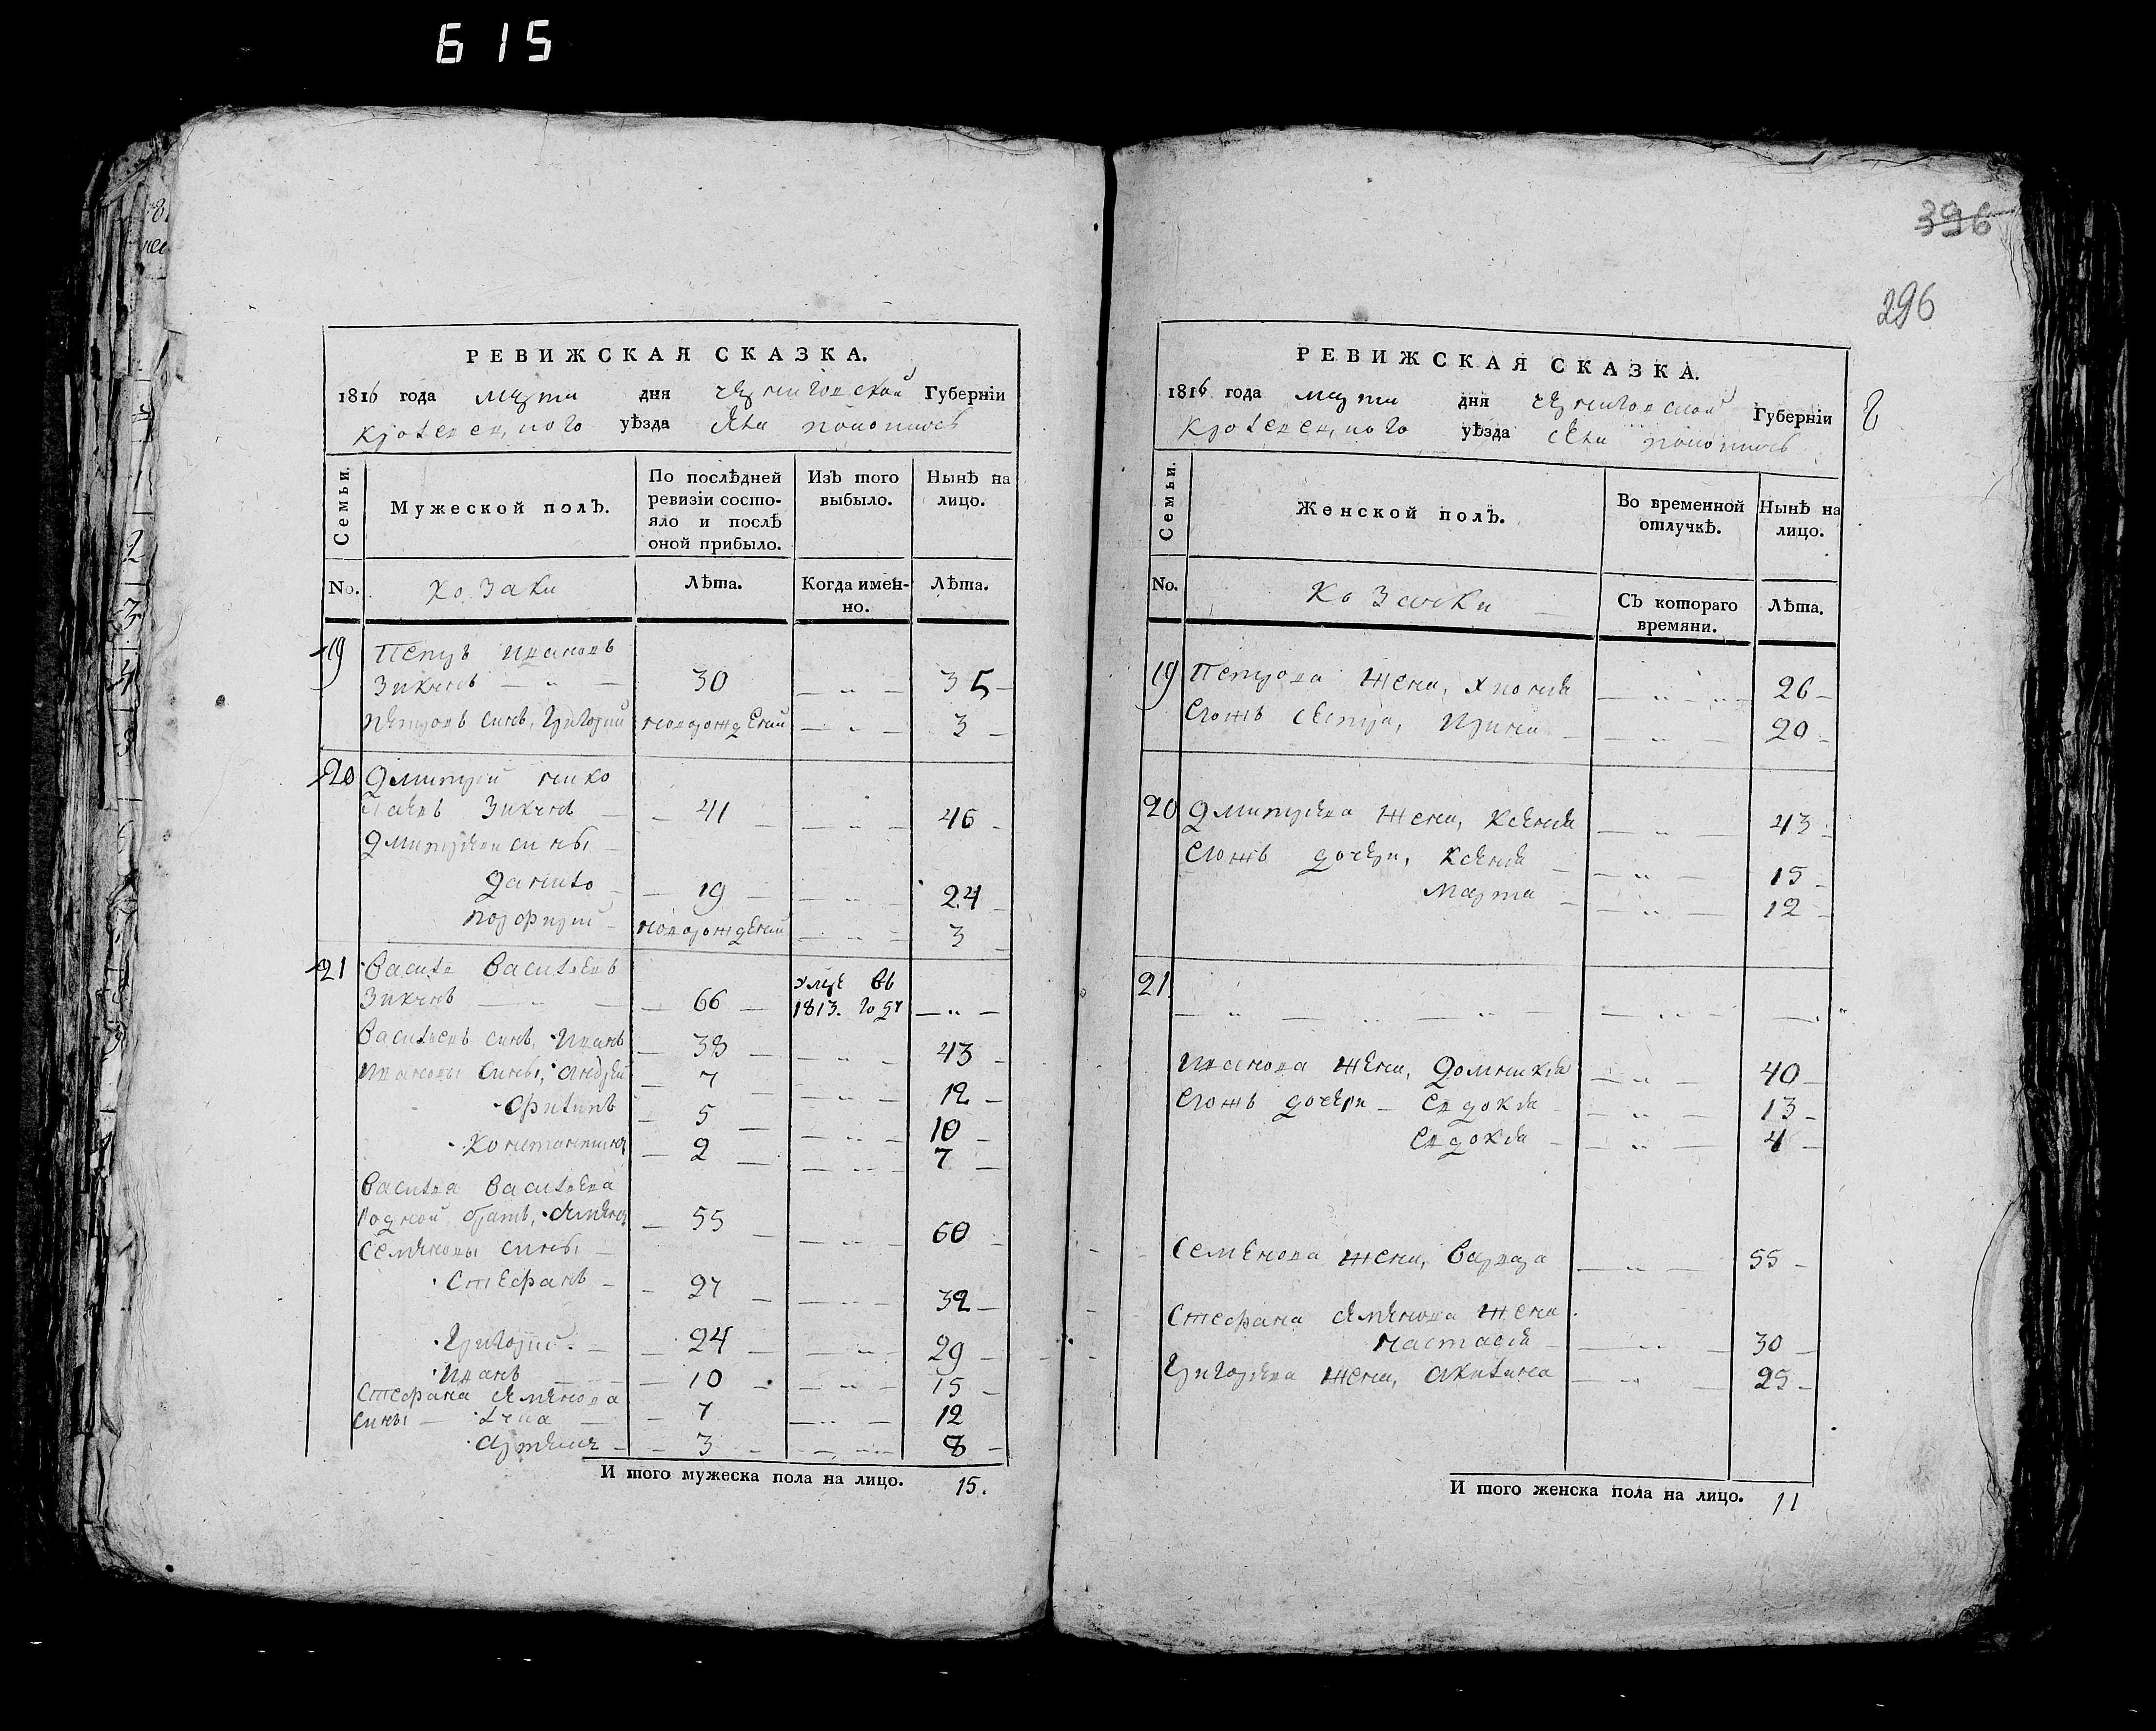 615
396
296
РЕВИЖСКАЯ СКАЗКА.
1816 года марта дня черниговской Губерніи
кролевец,кого уѣзда села
Семьи.
Мужеской полъ.
По послѣдней ревизіи состо-
яло и послѣ оной прибыло.
Изъ того выбыло.
Нынѣ на лицо.
No.
козаки
Лѣта.
Когда имен-
но.
Лѣта.
19 Петръ ивановъ
Зикинъ 30 35
петровъ синъ, григорий новорожденний 3
20 Дмитрій нико
лаевъ Зикинъ 41 46
Дмитріеви сины
данило 19 24
порфирий новорожденний 3
21 василь васильевъ
Зикинъ 66 умре въ 1813. году
васильевъ синъ, иванъ 38 43
ивановы сины, андрей 7 12
филипъ 5 10
константинъ 2 7
василья васильева
родной братъ, семенъ 55 60
семеновы сины
стефанъ 27 32
григорий 24 29
иванъ 10 15
стефана семенова
сины лука 7 12
артемъ 3 8
И того мужеска пола на лицо. 15.
РЕВИЖСКАЯ СКАЗКА.
1816 года марта дня черниговской Губерніи
кролевец,кого уѣзда села
Семьи.
Женской полъ.
Во временной отлучкѣ.
Нынѣ на лицо.
No.
козачки
Съ котораго времяни.
Лѣта.
19 Петрова жена, 26
Сгожъ сестра, ирина 20
20 Дмитриева жена, ксения 43
Сгожъ дочери, ксения 15
марта 12
21.
иванова жена, домникия 40
Сгожъ дочери евдокия 13
евдокия 4
семенова жена, варвара 55
стефана семенова жена
настасия 30
григориева жена, акилина 25
И того женска пола на лицо. 11